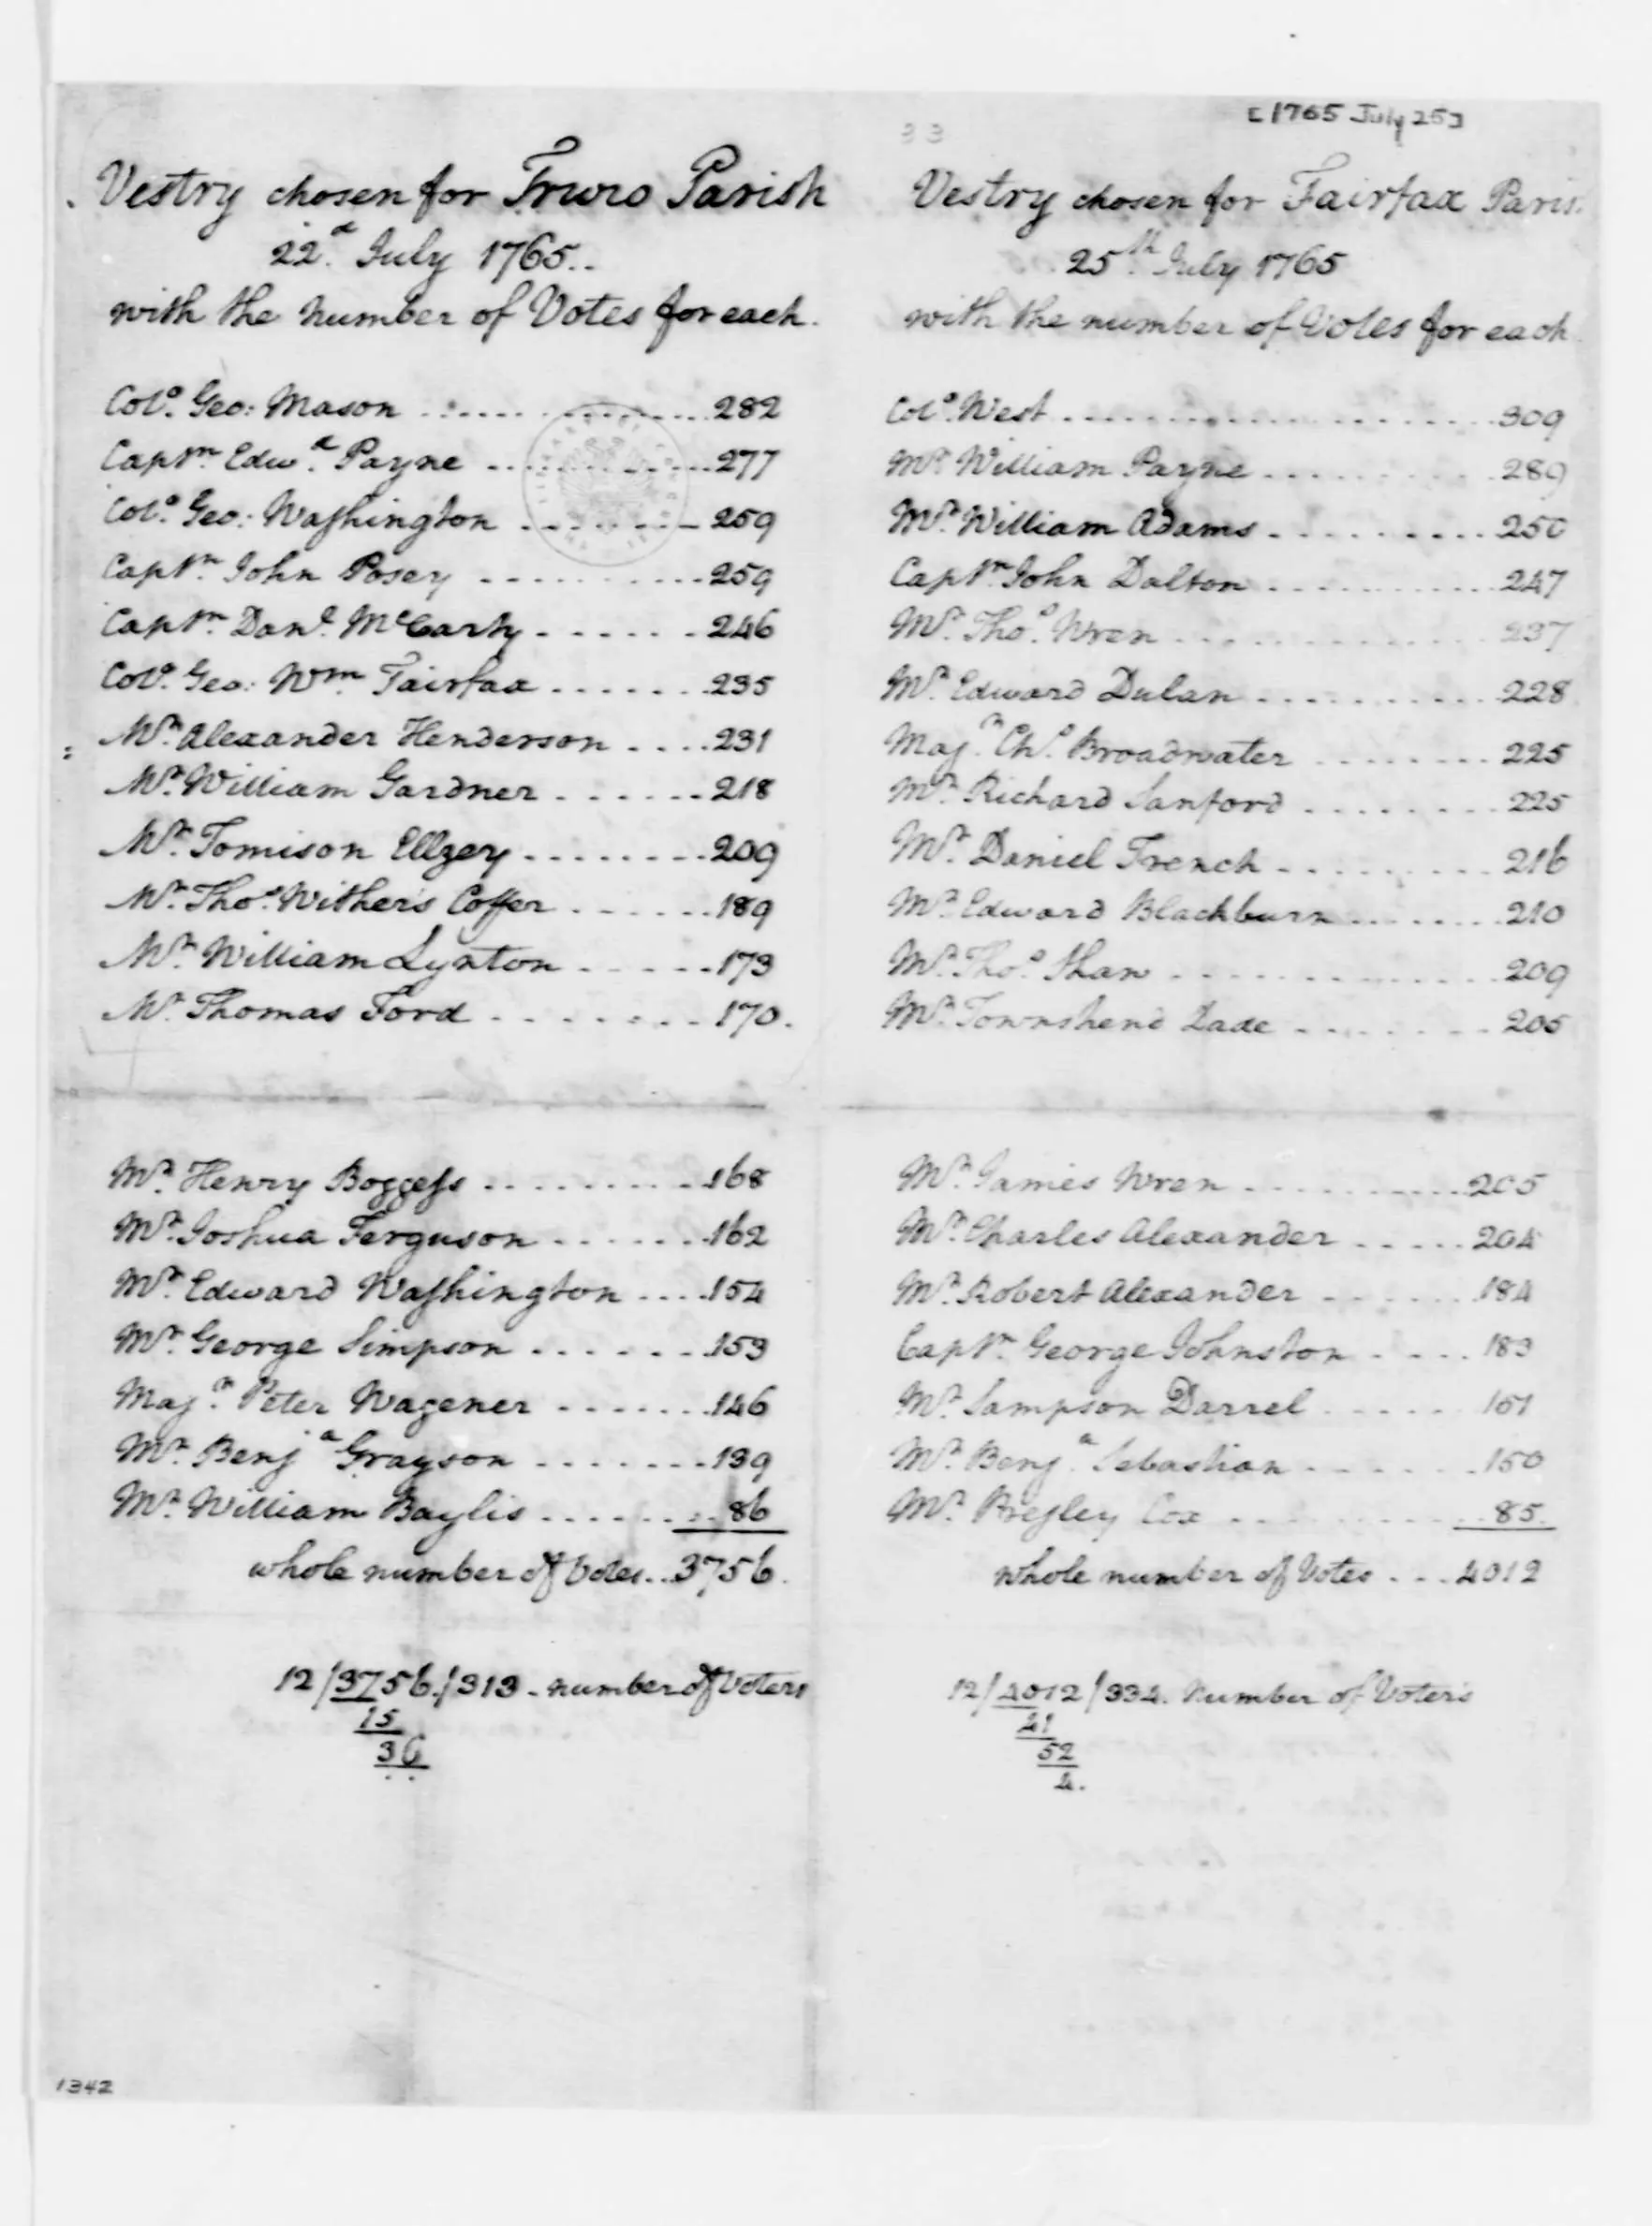 [1765 July 25]
33
Vestry chosen for Truro Parish
22d. July 1765..
with the number of Votes for each.
Colo. Geo: Mason .............. 282
Captn. Edwd. Payne ............ 277
Colo. Geo: Washington ........ 259
Captn. John Posey ........... 259
Captn. Danl. McCarty ....... 246
Colo. Geo: Wm. Fairfax ....... 235
Mr. Alexander Henderson .... 231
Mr. William Gardner ....... 218
Mr. Tomison Ellzey ........ 209
Mr. Thos. Withers Coffer ...... 189
Mr. William Lynton ...... 173
Mr. Thomas Ford ........ 170.
Mr. Henry Boggess ......... 168
Mr. Joshua Ferguson ....... 162
Mr. Edward Washington .... 154
Mr. George Simpson ....... 153
Majr. Peter Wagener ....... 146
Mr. Benja. Grayson ....... 139
Mr. William Baylis ........ 86
whole number of Votes.. 3756.
12/3756./313 - number of Voters
15
36
..
Vestry chosen for Fairfax Paris
25th. July 1765
with the number of Votes for each
Colo. West .................... 309
Mr. William Payne .......... 289
Mr. William Adams ......... 250
Captn. John Dalton .......... 247
Mr. Thos. Wren ............. 237
Mr. Edward Dulan ........... 228
Majr. Chs. Broadwater ........ 225
Mr. Richard Sanford ........ 225
Mr. Daniel French ......... 216
Mr. Edward Blackburn ....... 210
Mr. Thos. Shaw ............. 209
Mr. Townshend Dade ........ 205
Mr. James Wren ........... 205
Mr. Charles Alexander ..... 204
Mr. Robert Alexander ....... 184
Captn. George Johnston .... 183
Mr. Sampson Darrel ...... 151
Mr. Benja. Sebastian ....... 150
Mr. Presley Cox ............ 85.
whole number of Votes ... 4012
12/4012/334. Number of Voters
41
52
4.
1342